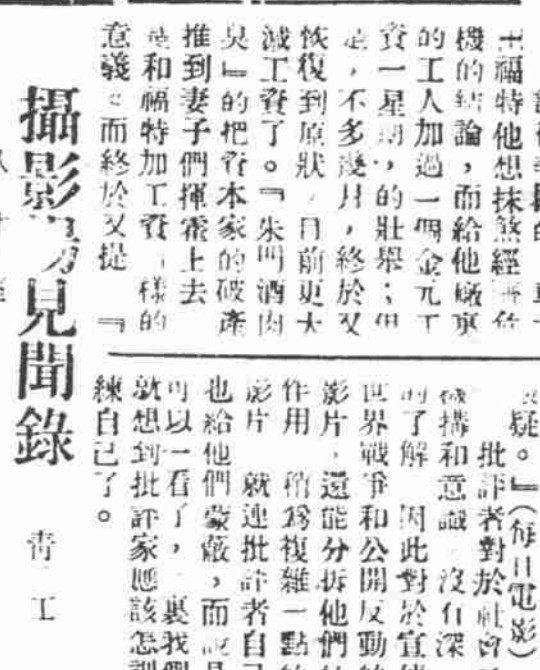 王福特他想抹煞經濟危
機的結論，而給他廠裏
的工人加過一個金元工
資一星期，的壯舉；但
是，不多幾月，終於又
恢復到原狀，目前更大
減工資了。『朱門酒肉
臭』的把資本家的破產
推到妻子們揮霍上去
是和福特加工資一樣的
意義。而終於又提『
疑。』（每日電影）
批評者對於社會
機構和意識 沒有深
的了解 因此對於宣
世界戰爭和公開反動
影片，還能分拆他們
作用 稍爲複雜一點
影片 就連批評者自己
也給他們蒙蔽，而說是
可以一看了，裏我們
就想到批評家應該怎訓
練自己了。
攝影場見聞錄
青工